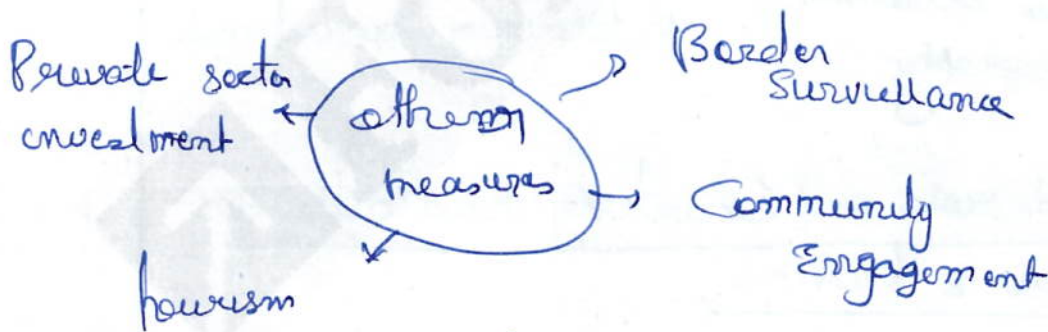 Private sector
investment
other
measures
Border
Surveillance
Community
Engagement
tourism